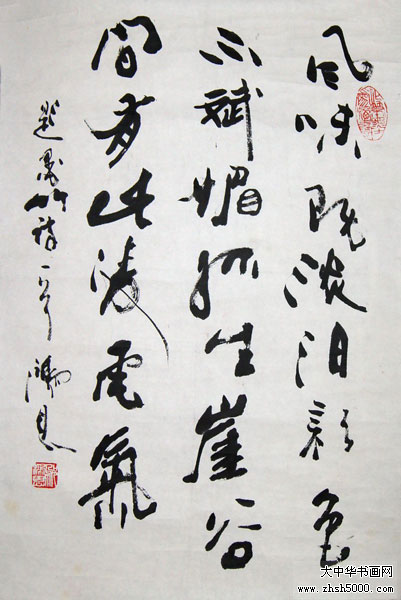 风味既淡泊颜色
不斌媚孤生崖谷
間有此凌雲氣
墨竹詩一首
大中华书画网
www.zhsh5000.com